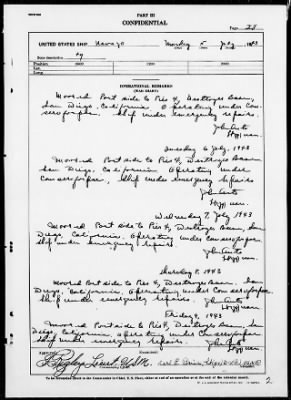 PART III
CONFIDENTIAL
Page 28
UNITED STATES SHIP Navajo Monday 5 July 1943
Zone description
Position 0800 1200 2000
Lat.
Long.
OPERATIONAL REMARKS
(WAR DIARY)
Moored Port side to Pier 4, Destroyer Base,
San Diego, California. Operating under Com-
servforpac. Ship under emergency repairs.
Tuesday 6 July, 1943
Moored Port side to Pier 4, Destroyer Base
San Diego, California operating under
Comservforpac, Ship under emergency repairs
Wednesday 7 July 1943
Moored Port side to Pier 4, Destroyer Base, San
Diego, California, Operating under Comservforpac.
Ship under emergency repairs
Thursday 8, 1943
Moored Port side to Pier 4, Destroyer Base, San
Diego, California, Operating under Comservforpac
Ship under emergency repairs.
Friday 9, 1943
Moored Port side to Pier 4, Destroyer Base, San
Diego, California operating under Comservforpac
Ship under emergency repairs.
Approved
Commanding
2